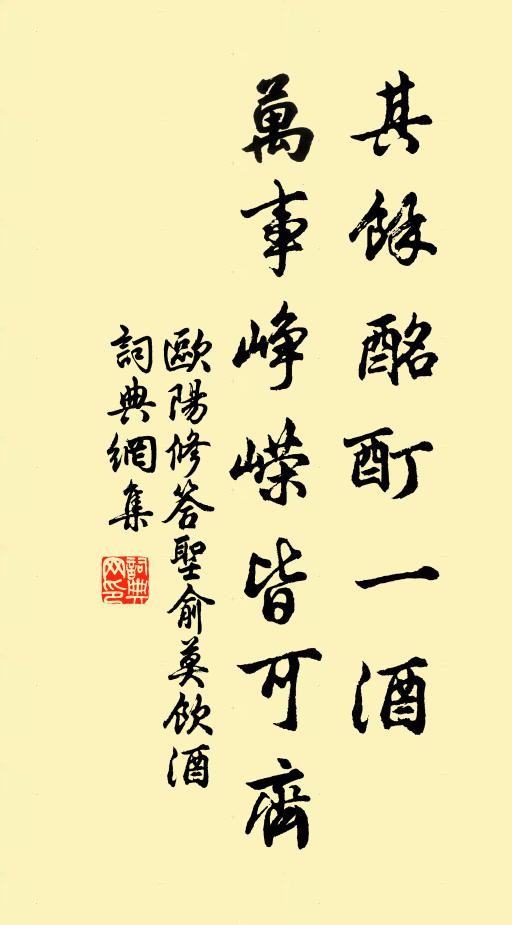 其餘酩酊一酒
萬事崢嶸皆可齊
歐陽修答聖俞莫飲酒
詞典網集
詞典
网印